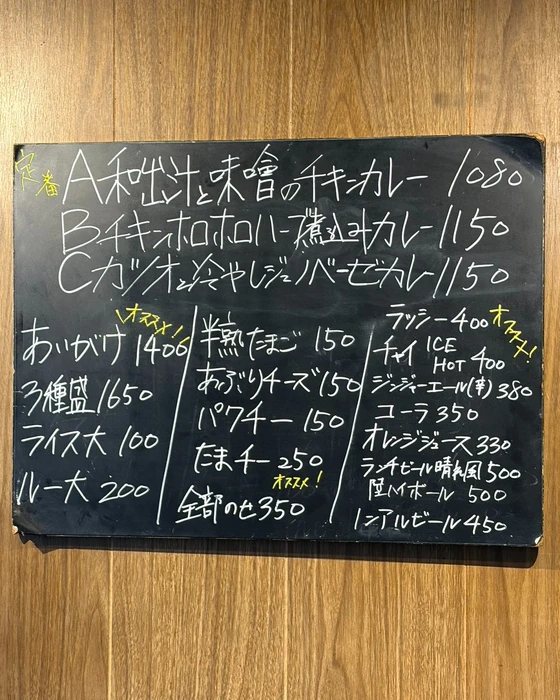 定番 A 和出汁と味噌のチキンカレー 1080
B チキンホロホロハーブ煮込みカレー 1150
C カツオと冷やしジェノベーゼカレー 1150
オススメ!
あいがけ 1400
3種盛 1650
ライス大 100
ルー大 200
半熟たまご 150
あぶりチーズ 150
パクチー 150
たまチー 250
オススメ!
全部のせ 350
ラッシー 400 オススメ!
チャイ ICE HOT 400
ジンジャーエール(辛) 380
コーラ 350
オレンジジュース 330
ランチビール晴れ風 500
陸ハイボール 500
ノンアルビール 450